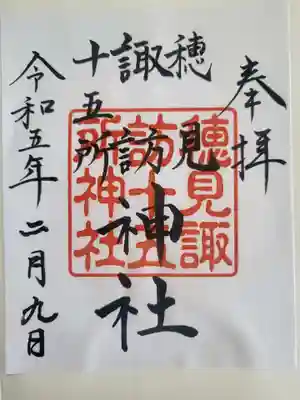 奉拝
穂見
諏訪神社
十五所
令和五年二月九日
穂見諏
訪十五
所神社